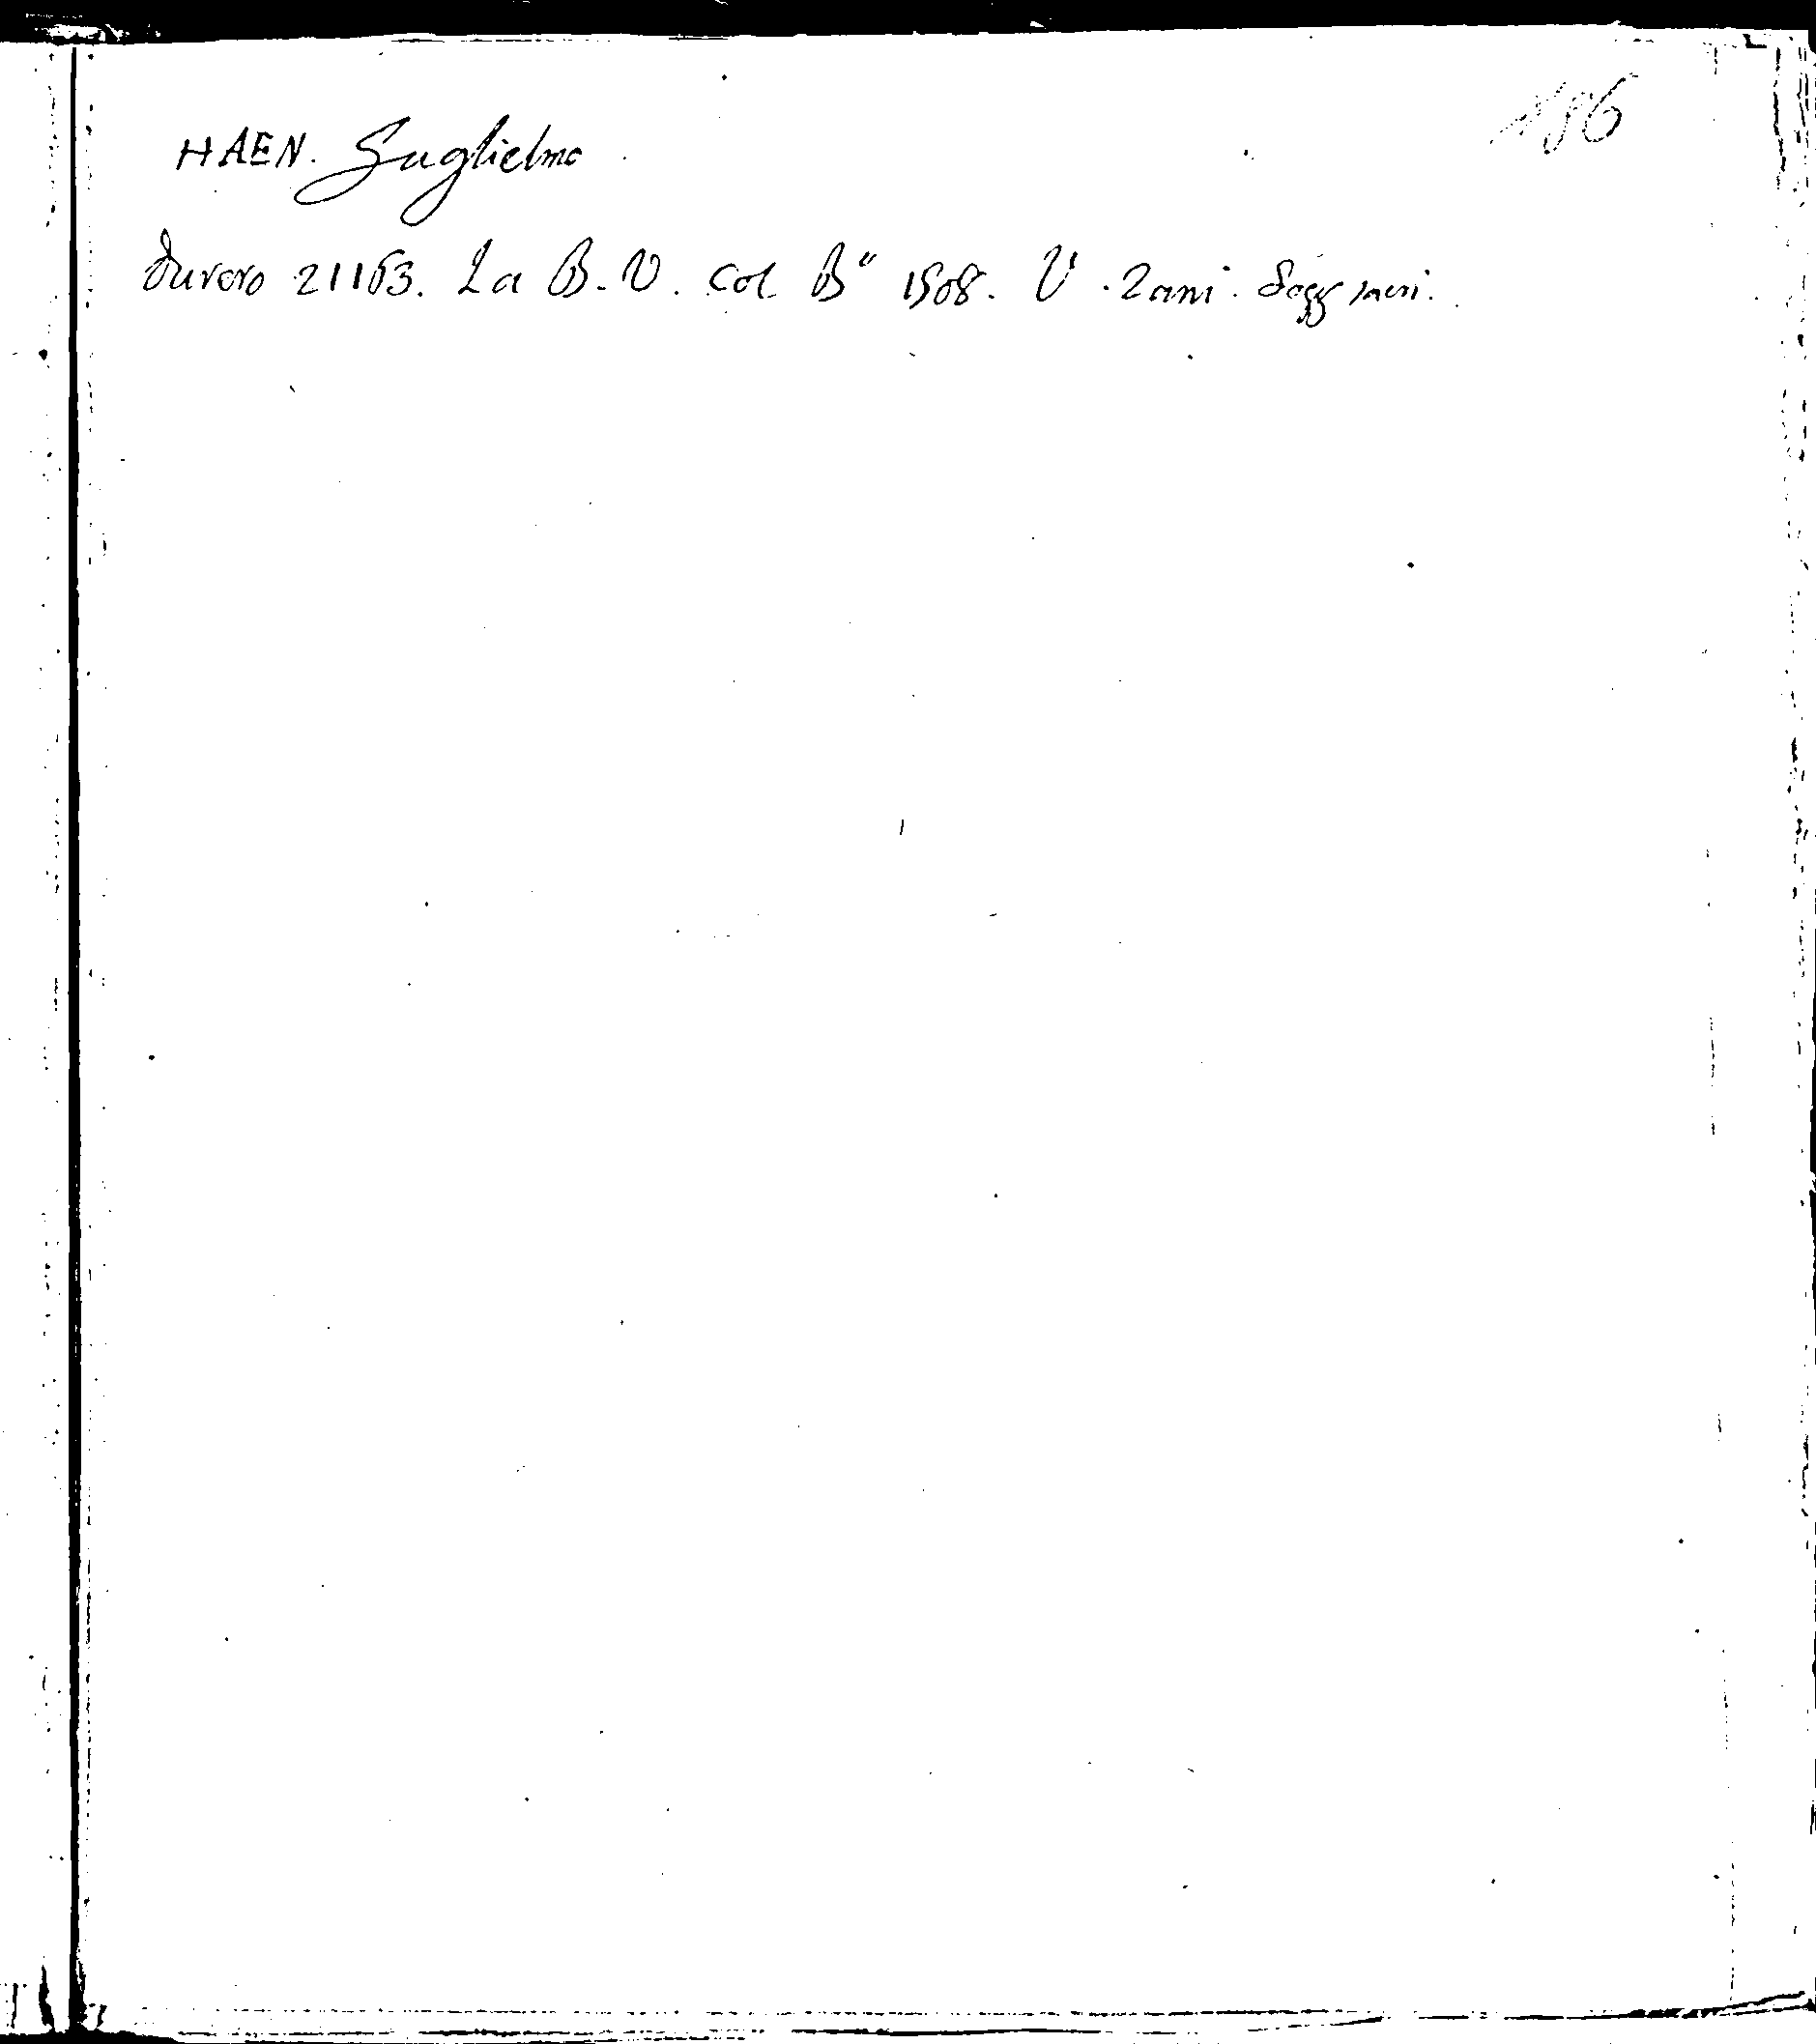 186
HAEN. Guglielmo
Durero 21163. La B. V. col Bº 1508. V. Zani. Sogg sacri.